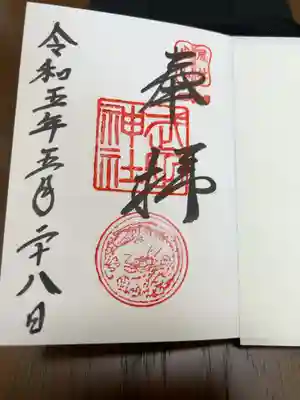 奉拝
神社
令和五年五月二十八日